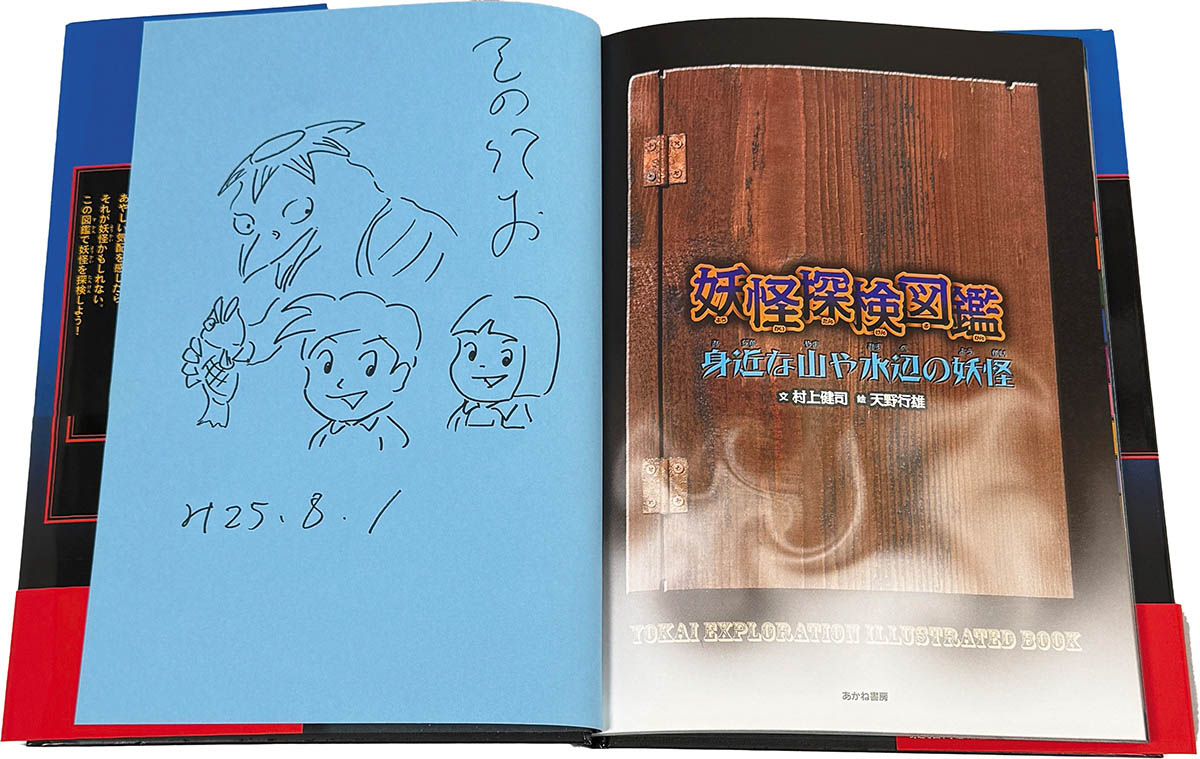 あやしい気配を感じたら
それが妖怪かもしれない。
この図鑑で妖怪を探検しよう!
H25.8.1
妖怪探検図鑑
身近な山や水辺の妖怪
文 村上健司 絵 天野行雄
YOKAI EXPLORATION ILLUSTRATED BOOK
あかね書房